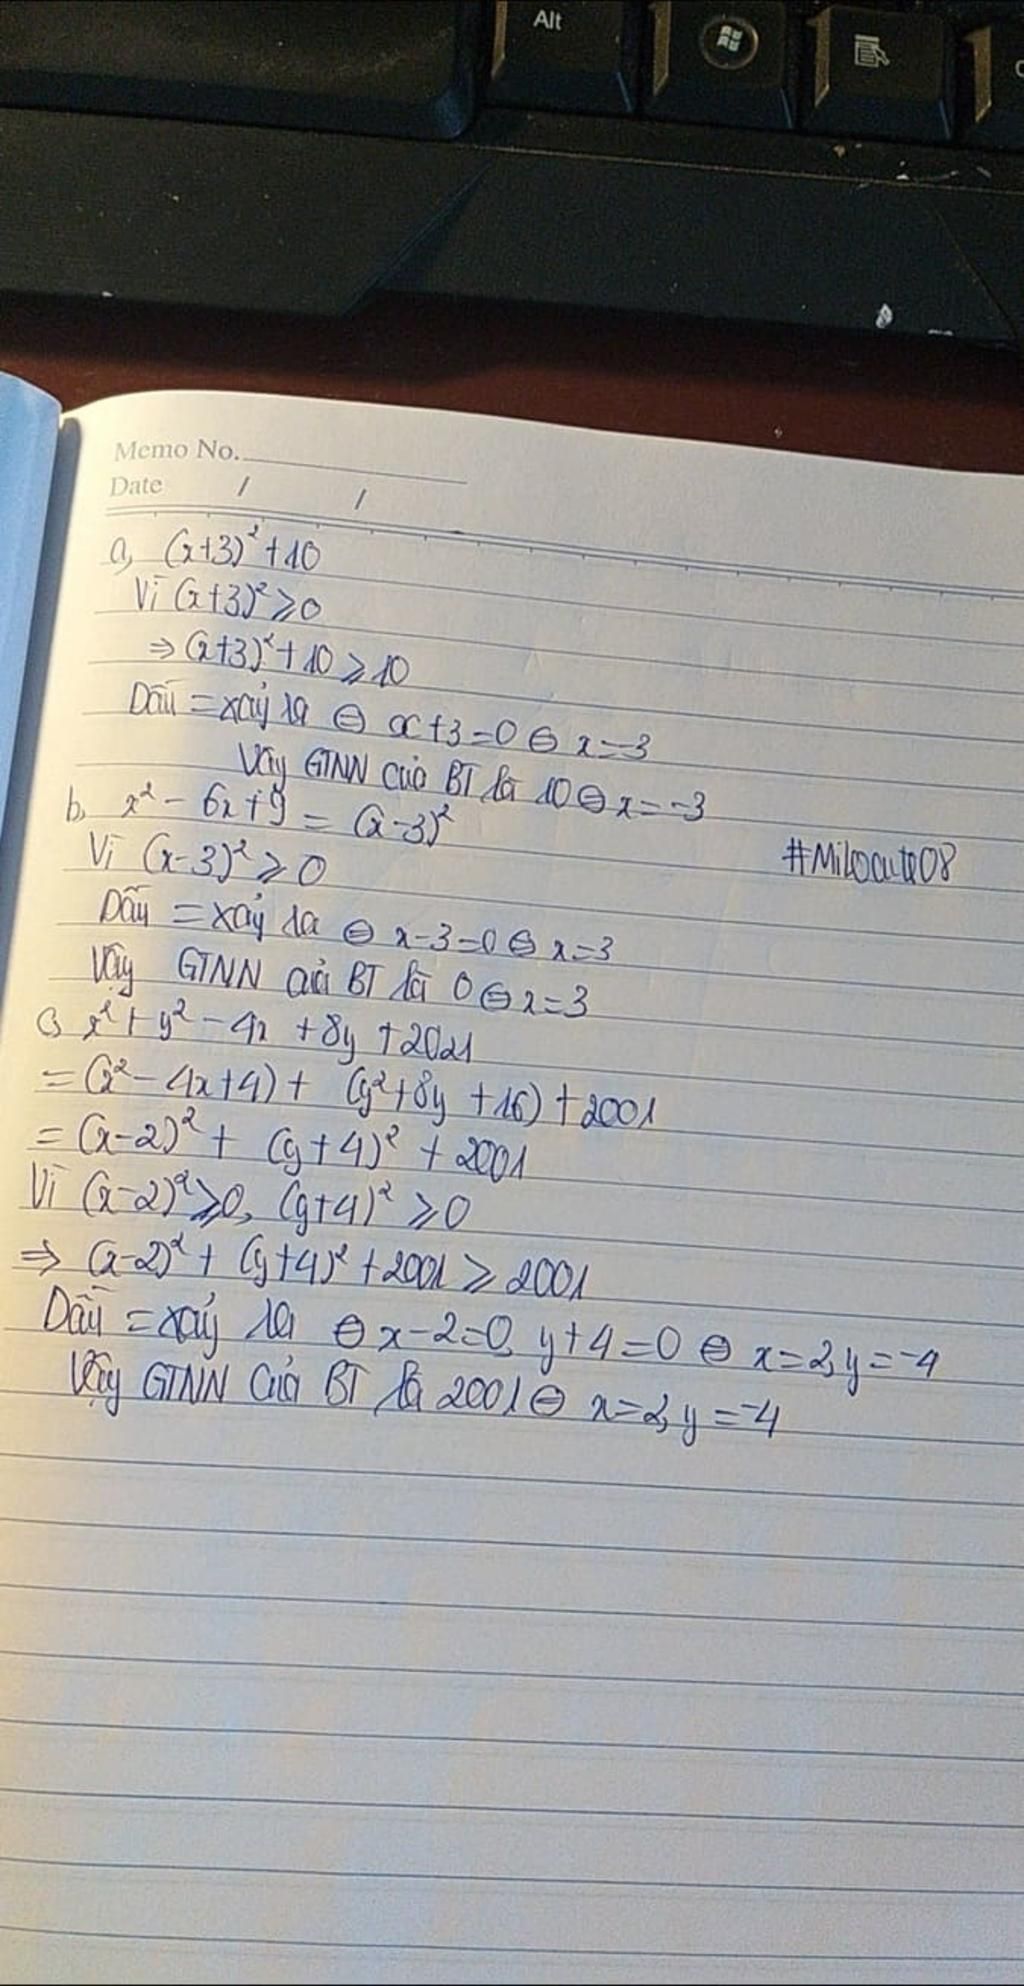 Alt
Memo No.
Date / /
a, (x+3)² + 10
Vì (x+3)² ⩾ 0
⇒ (x+3)² + 10 ⩾ 10
Dấu = xảy ra ⇔ x+3=0 ⇔ x=-3
Vậy GTNN của BT là 10 ⇔ x=-3
b, x² - 6x + 9 = (x-3)²
Vì (x-3)² ⩾ 0
#Milocute08
Dấu = xảy ra ⇔ x-3=0 ⇔ x=3
Vậy GTNN của BT là 0 ⇔ x=3
c, x² + y² - 4x + 8y + 2021
= (x² - 4x + 4) + (y² + 8y + 16) + 2001
= (x-2)² + (y+4)² + 2001
Vì (x-2)² ⩾ 0, (y+4)² ⩾ 0
⇒ (x-2)² + (y+4)² + 2001 ⩾ 2001
Dấu = xảy ra ⇔ x-2=0, y+4=0 ⇔ x=2, y=-4
Vậy GTNN của BT là 2001 ⇔ x=2, y=-4